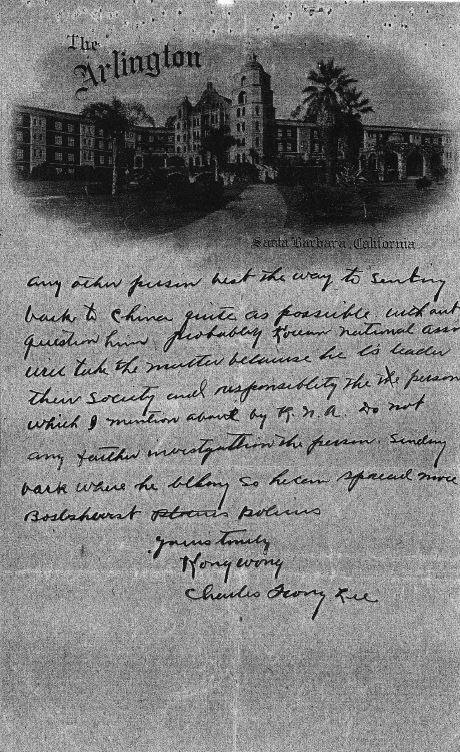 The
Arlington
Santa Barbara, California
any other person best the way to sending
back to China quite as possible without
question him. probably Korean national assn
will take the matter because he is leader
their society and responsiblity the the person
which I mention above by K. N. A. Do not
any further investgattion the person. Sending
back where he blhony so he can spread more
Boshshevist
yours truly
Kong wong
Charles Lee